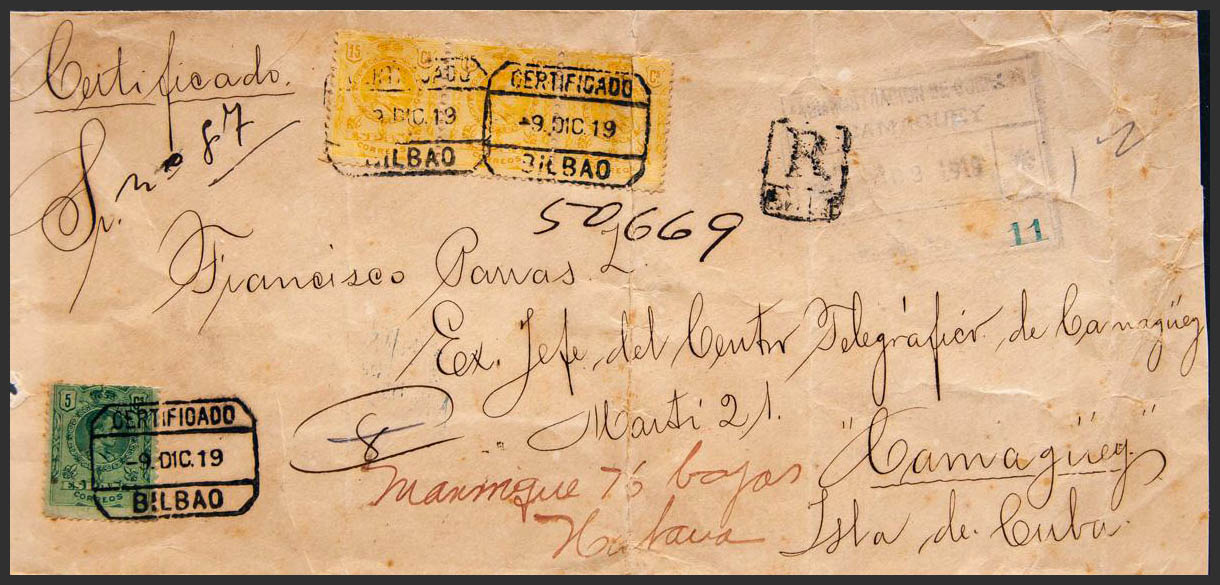 Certificado.
Sp. nº 87
15 Cs
CORREOS
CERTIFICADO
9.DIC.19
BILBAO
CERTIFICADO
-9.DIC.19
BILBAO
R
50669
11
Francisco Parras L.
Ex. Jefe del Centro Telegráfico de Camagüey
Martí 21.
"Camagüey."
Isla de Cuba.
8
Manrique 76 bajos
Habana
5 Cs
CORREOS
CERTIFICADO
-9.DIC.19
BILBAO